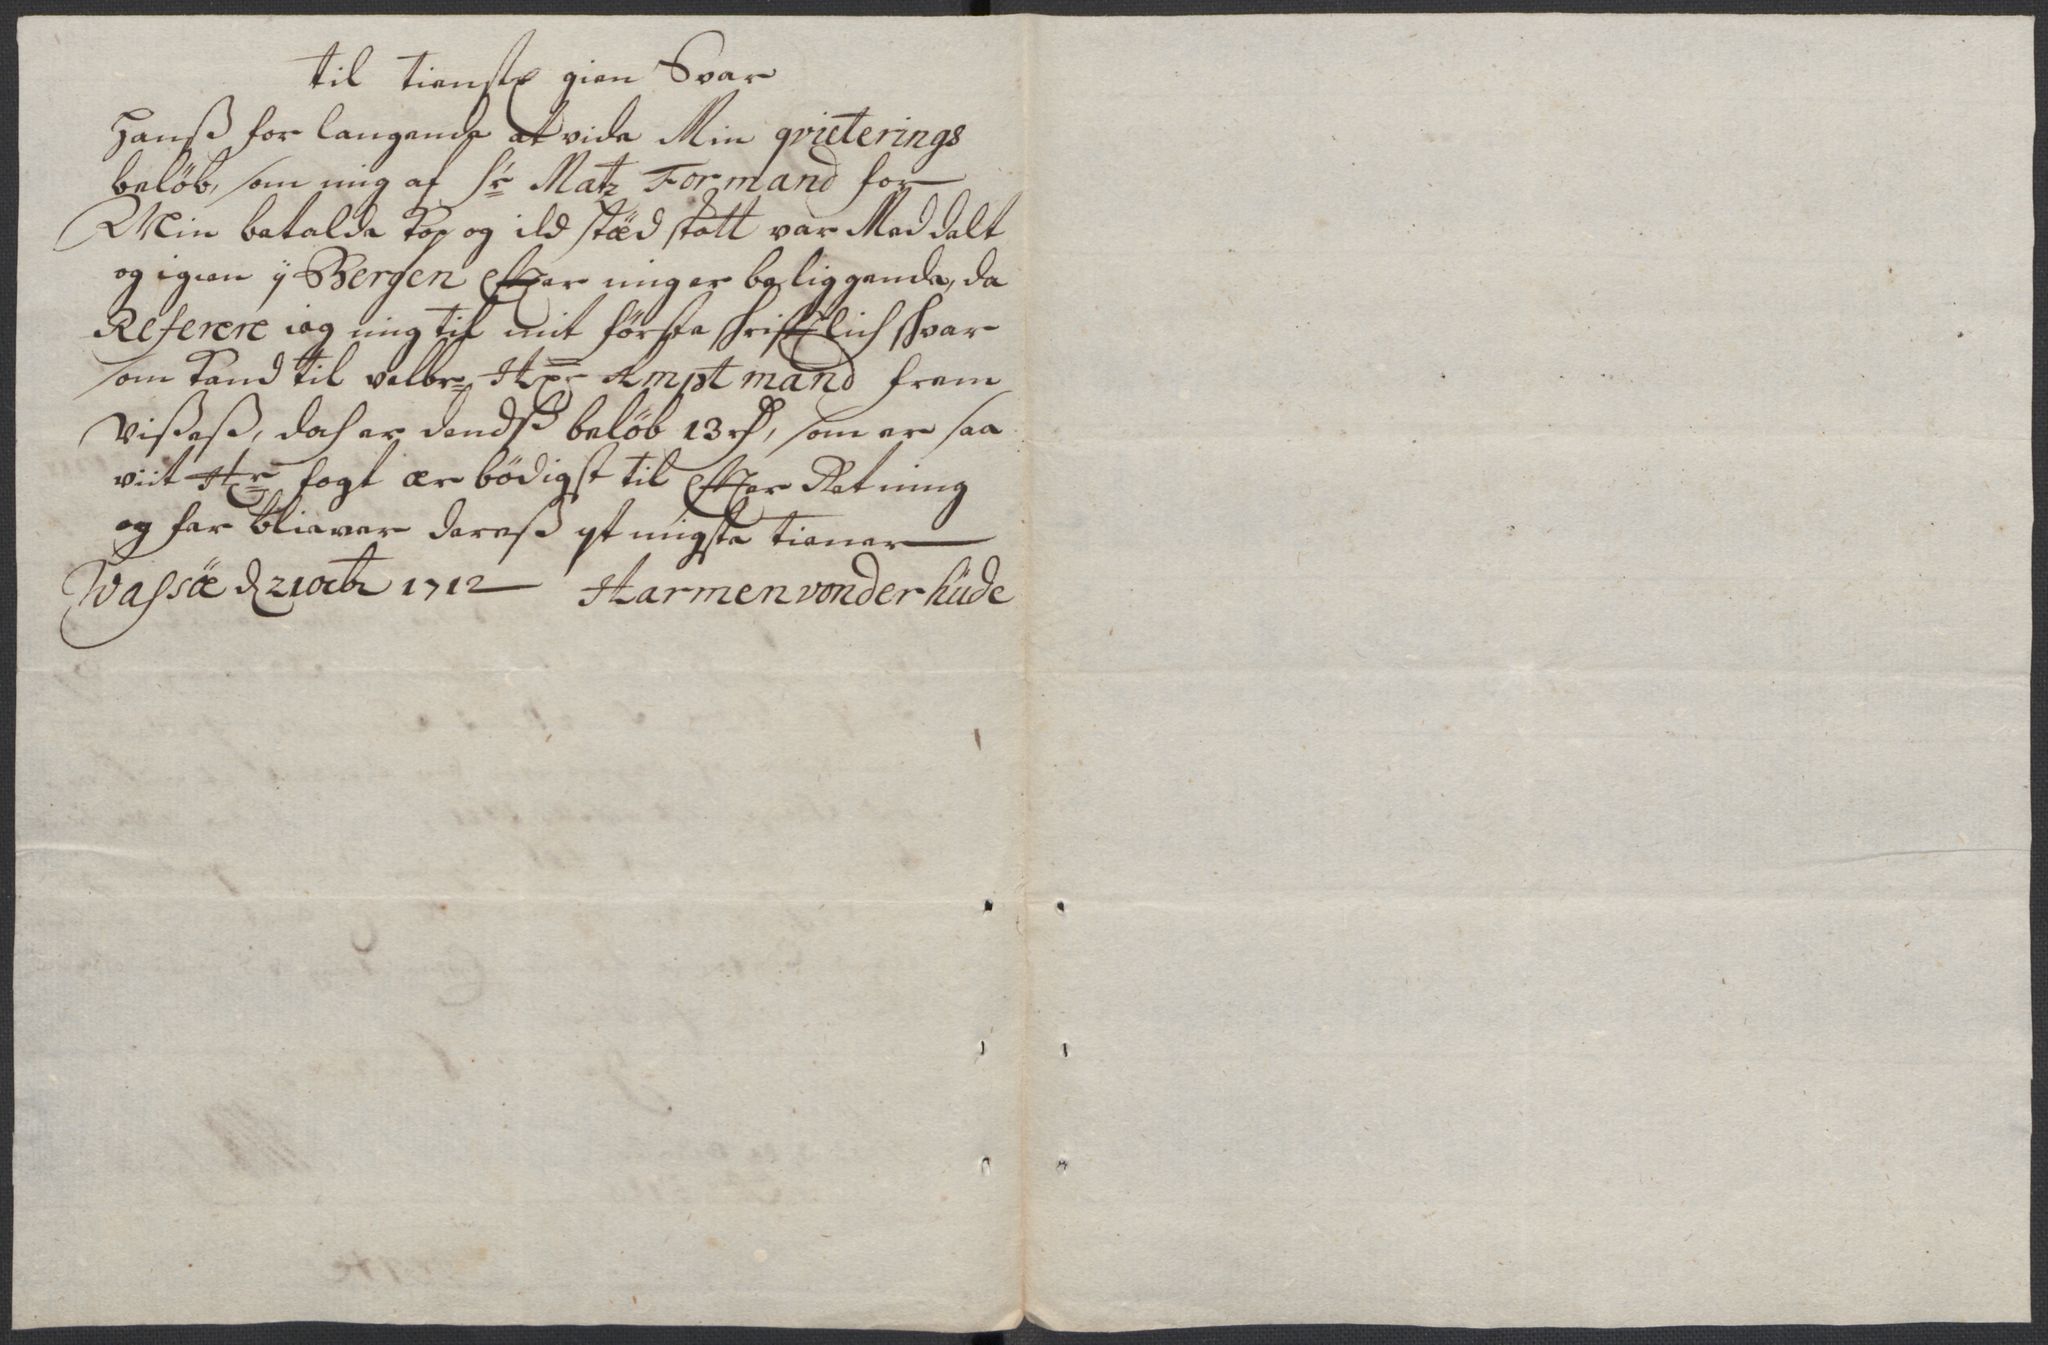 til tieniste gien Svar
Hanß for langende at vide Min qvieterings
beløb, som mig af Sr Matz Formand for
Min betalde Kop og ild stæd skatt var Med delt
og igien ÿ Bergen Efter mig er be liggende, da
Referere ieg mig til mit første skrifftlich schvar
som Kand til velbr: Hr: Amptmand frem
Vißeß, doch er dendß beløb 13 rd, som er saa
viit Hr fogt ær bødigst til Efter Ret ning
og for bliever dereß ytmigste tiener
Wassöe d 21 octbr 1712 Harmen vonder hüde